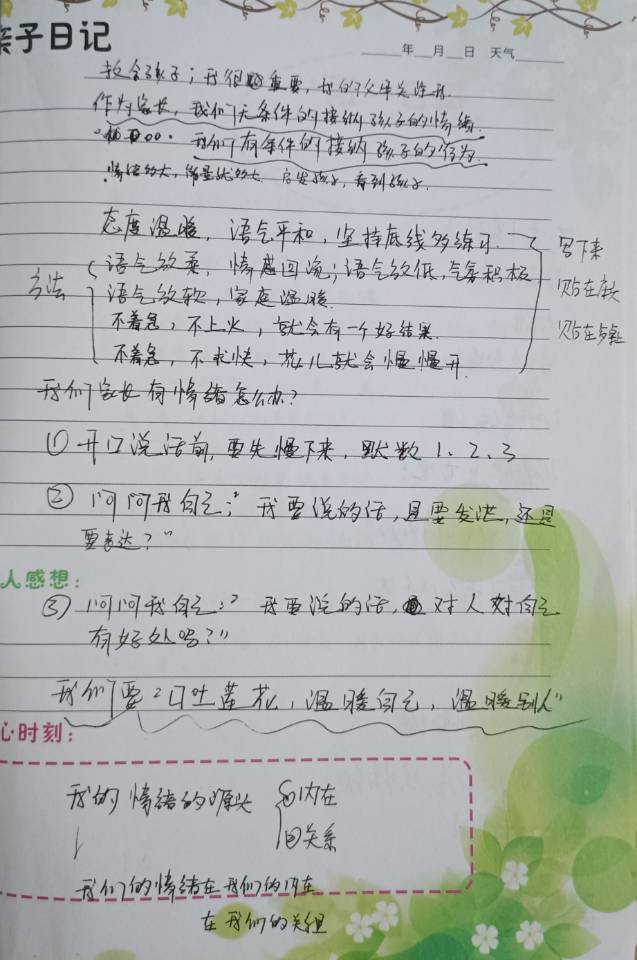 亲子日记
年 月 日 天气
教会孩子；我很重要，我的父母关注我.
作为家长，我们无条件的接纳孩子的情绪.
我们有条件的接纳孩子的行为.
情绪放大，能量就放大 启发孩子，看到孩子.
态度温暖，语气平和，坚持底线多练习. 写下来
语气放柔，情感回流；语气放低，气氛积极 贴在床头
方法 语气放软，家庭温暖 贴在
不着急，不上火，就会有一个好结果.
不着急，不求快，花儿就会慢慢开.
我们家长有情绪怎么办？
① 开口说话前，要先慢下来，默数1、2、3
② 问问我自己；“我要说的话，是要发泄，还是
要表达？”
人感想：
③ 问问我自己：“我要说的话，对人对自己
有好处吗？”
我们要“口吐莲花，温暖自己，温暖别人”
心时刻：
我的情绪的源头 ①内在
②关系
我们的情绪在我们的内在
在我们的关系